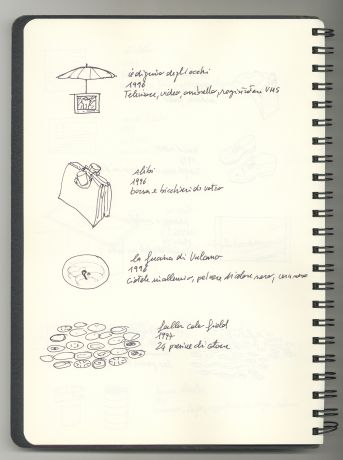 degli occhi
1996
Televisore, video, ombrello, registratore VHS
Alibi
1996
borsa e bicchieri di vetro
la fucina di Vulcano
1996
ciotola in alluminio, polvere di colore nero,
fuller cake field
1997
24 di